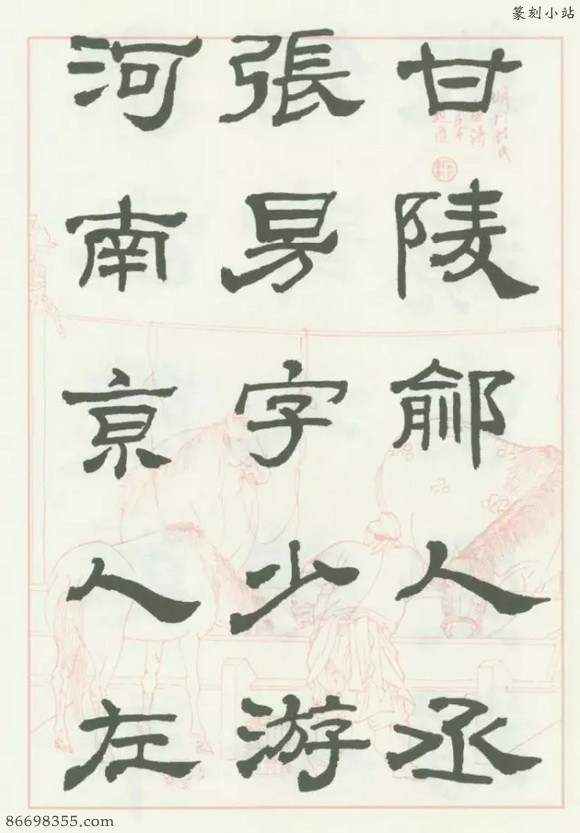 篆刻小站
甘陵鄃人丞
張昜字少游
河南亰人左
86698355.com